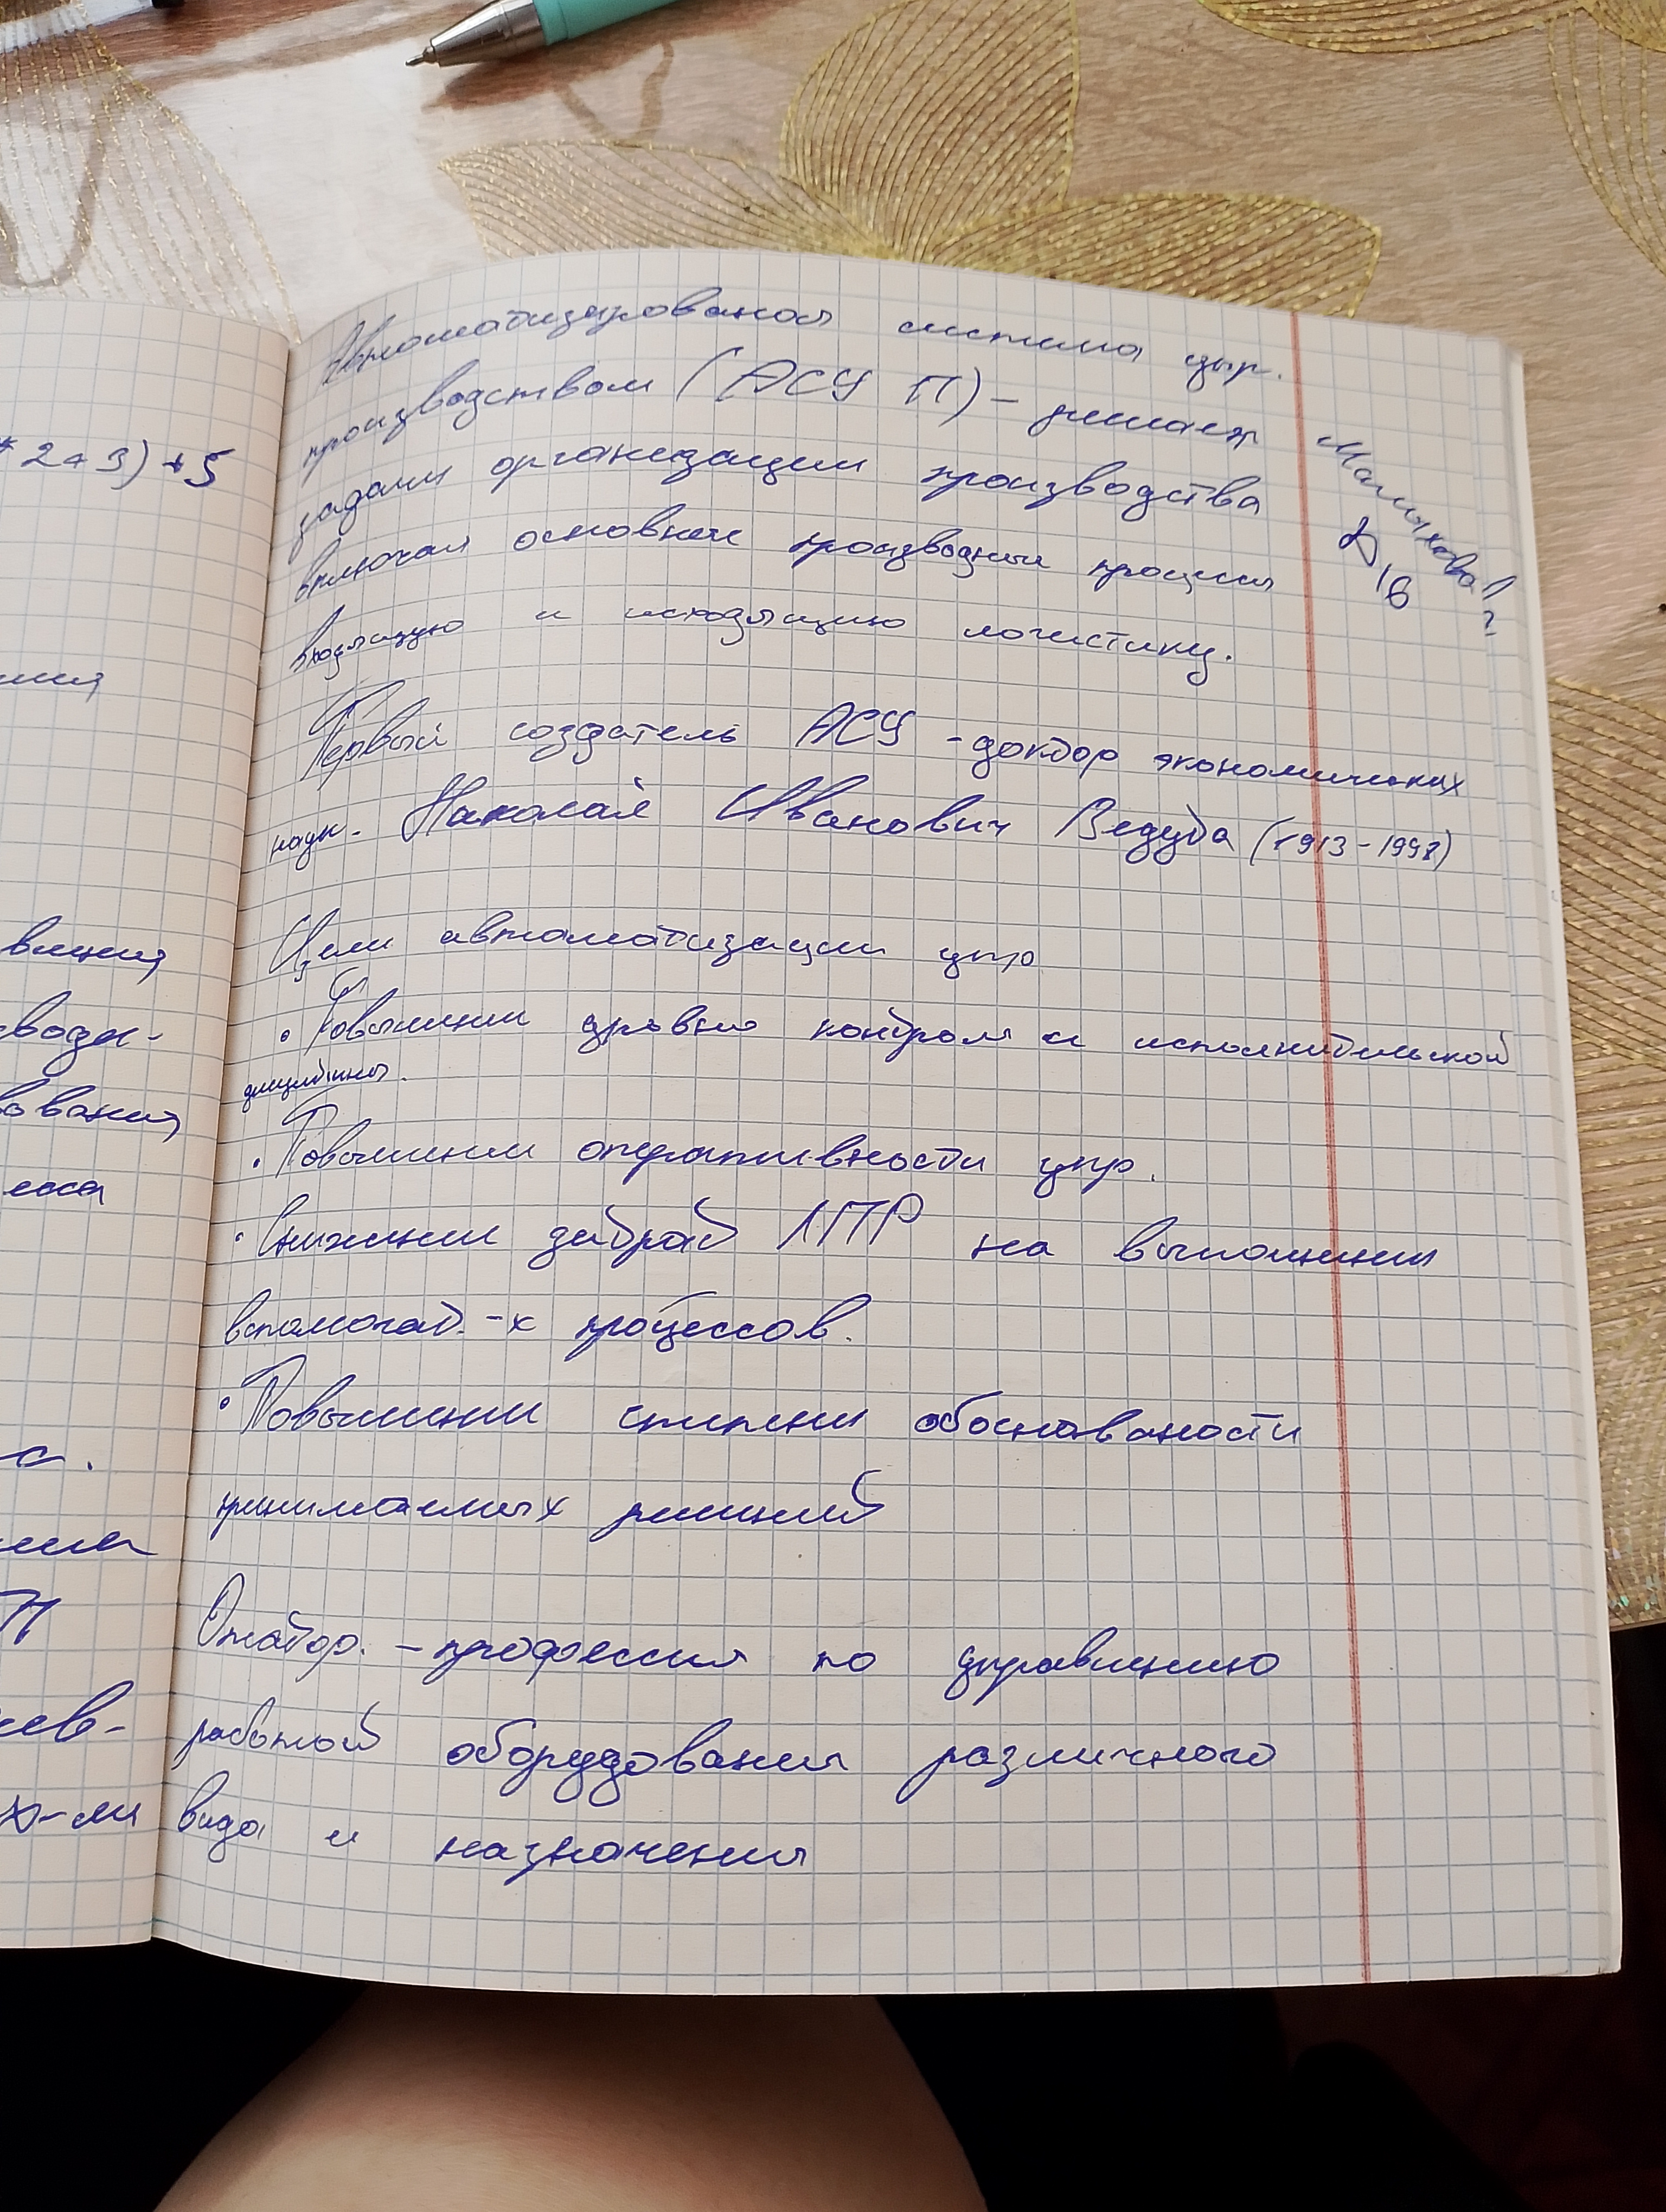 * 2 + 3) + 5
Автоматизированая система упр.
производством (АСУ П) – решает
задачи организации производства
включая основные производные процессы
входящую и исходящую логистику.
Первый создатель АСУ – доктор экономических
наук. Николай Иванович Ведута (1913 – 1998)
Цели автоматизации упр
• Повышение уровня контроля и исполнительской
дисциплины.
• Повышение оперативности упр.
• Снижение затрат ЛПР на выполнение
вспомогат.-х процессов.
• Повышение степени обоснованости
принимаемых решений
– профессия по управлению
работой оборудования различного
вида и назначения